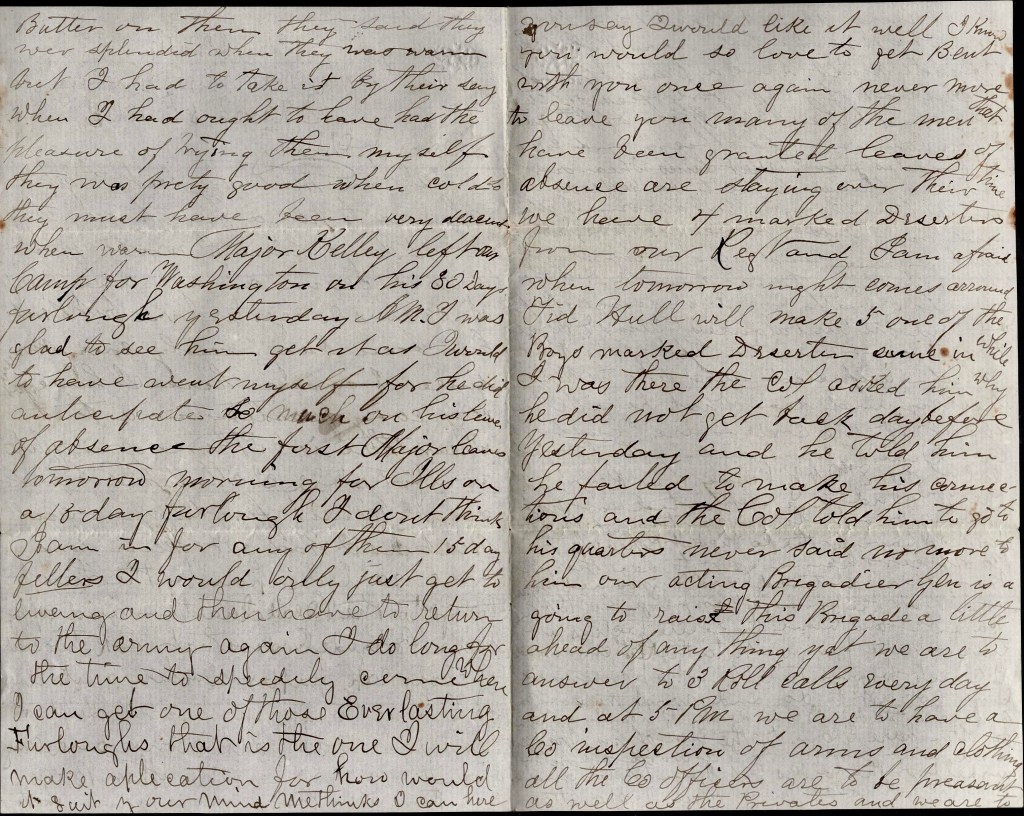 Butter on them they said they
wer splendid when they was warm
but I had to take it by their say
when I had ought to have had the
pleasure of trying them myself
they was prety good when cold so
they must have been very deacent
when warm Major Kelley left our
Camp for Washington on his 30 days
furlough yesterday A.M. I was
glad to see him get it as I would
to have went myself for he did
anticipate so much on his leave
of absence the first Major leaves
tomorrow morning for Ills on
a 15 day furlough I dont think
I am in for any of them 15 day
fellers I would only just get to
liveing and then have to return
to the army again I do long for
the time to speedily come when
I can get one of those Everlasting
Furloughs that is the one I will
make aplecation for how would
it suit your mind methinks I can here
you say I would like it well I know
you would so love to get Bent
with you once again never more
to leave you many of the men that
have been granted leaves of
absence are staying over their time
we have 4 marked Deserters
from our Regt and I am afraid
when tomorrow night comes arround
Tid Hull will make 5 one of the
Boys marked Deserter came in while
I was there the Col asked him why
he did not get back day before
yesterday and he told him
he failed to make his connec-
tions and the Col told him to go to
his quarters never said no more to
him our acting Brigadier Gen is a
going to raise this Brigade a little
ahead of any thing yet we are to
answer to 3 Roll calls every day
and at 5 PM we are to have a
Co inspection of arms and clothing
all the Co officers are to be preasant
as well as the Privates and we are to